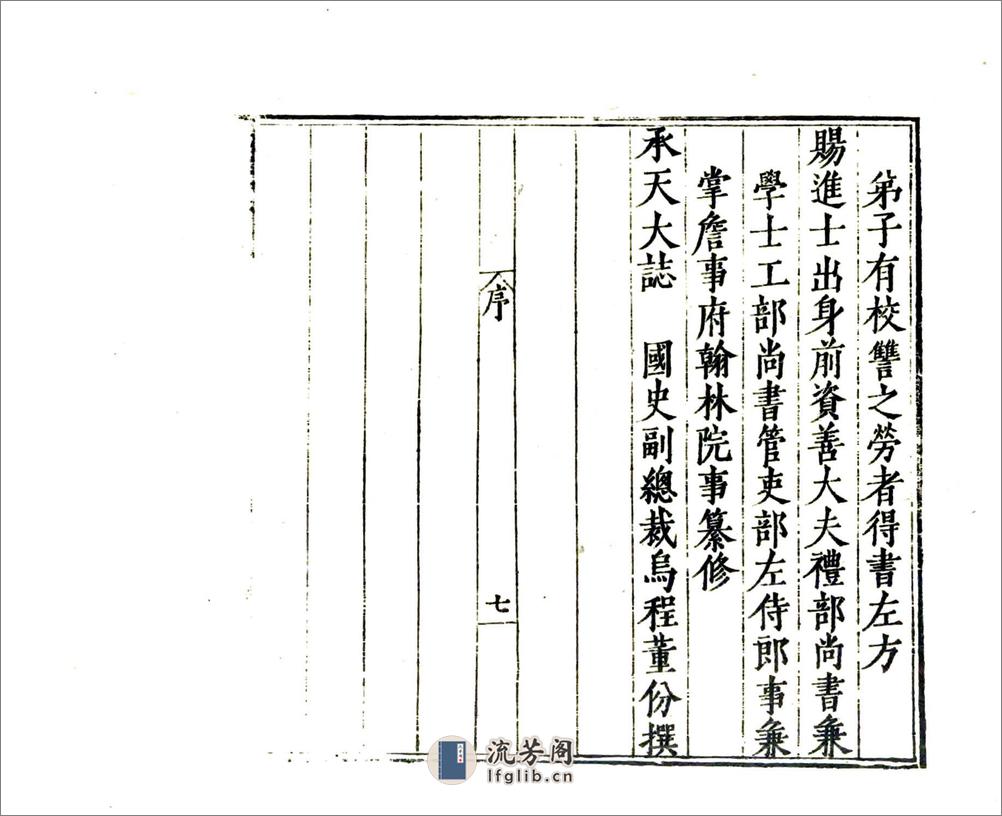 弟子有校讐之勞者得書左方
賜進士出身前資善大夫禮部尚書兼
學士工部尚書管吏部左侍郎事兼
掌詹事府翰林院事纂修
承天大誌　國史副總裁烏程董份撰
序
七
流芳阁
lfglib.cn